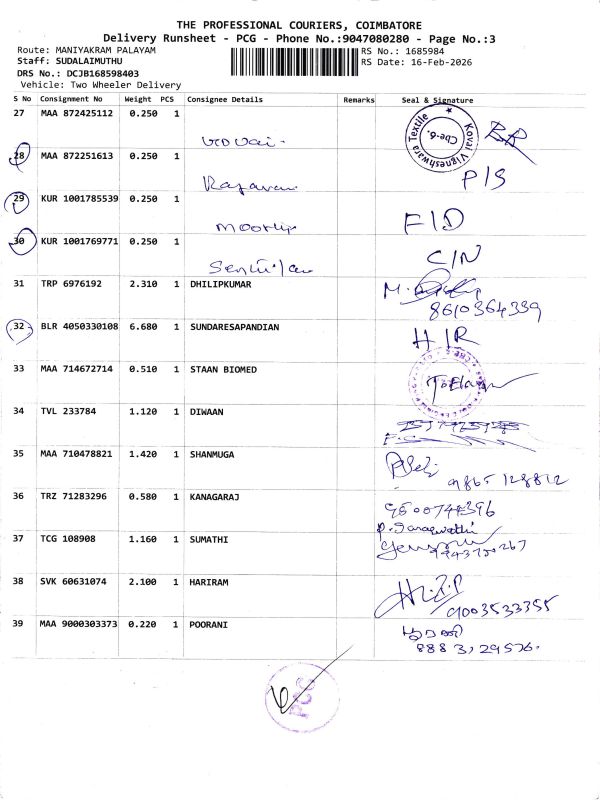 THE PROFESSIONAL COURIERS, COIMBATORE
Delivery Runsheet - PCG - Phone No.:9047080280 - Page No.:3
Route: MANIYAKRAM PALAYAM
RS No.: 1685984
Staff: SUDALAIMUTHU
RS Date: 16-Feb-2026
DRS No.: DCJB168598403
Vehicle: Two Wheeler Delivery
S No Consignment No Weight PCS Consignee Details Remarks Seal & Signature
27 MAA 872425112 0.250 1
Kovai Vigneshwara Textile Cbe-6.
28 MAA 872251613 0.250 1
P/S
29 KUR 1001785539 0.250 1
F/D
30 KUR 1001769771 0.250 1
C/N
31 TRP 6976192 2.310 1 DHILIPKUMAR
8610364339
32 BLR 4050330108 6.680 1 SUNDARESAPANDIAN H/R
33 MAA 714672714 0.510 1 STAAN BIOMED
34 TVL 233784 1.120 1 DIWAAN
35 MAA 710478821 1.420 1 SHANMUGA
9865128812
36 TRZ 71283296 0.580 1 KANAGARAJ
9500744396
P. Saraswathi
37 TCG 108908 1.160 1 SUMATHI
38 SVK 60631074 2.100 1 HARIRAM
9003533355
39 MAA 9000303373 0.220 1 POORANI பூரணி
8883129576.
PCG